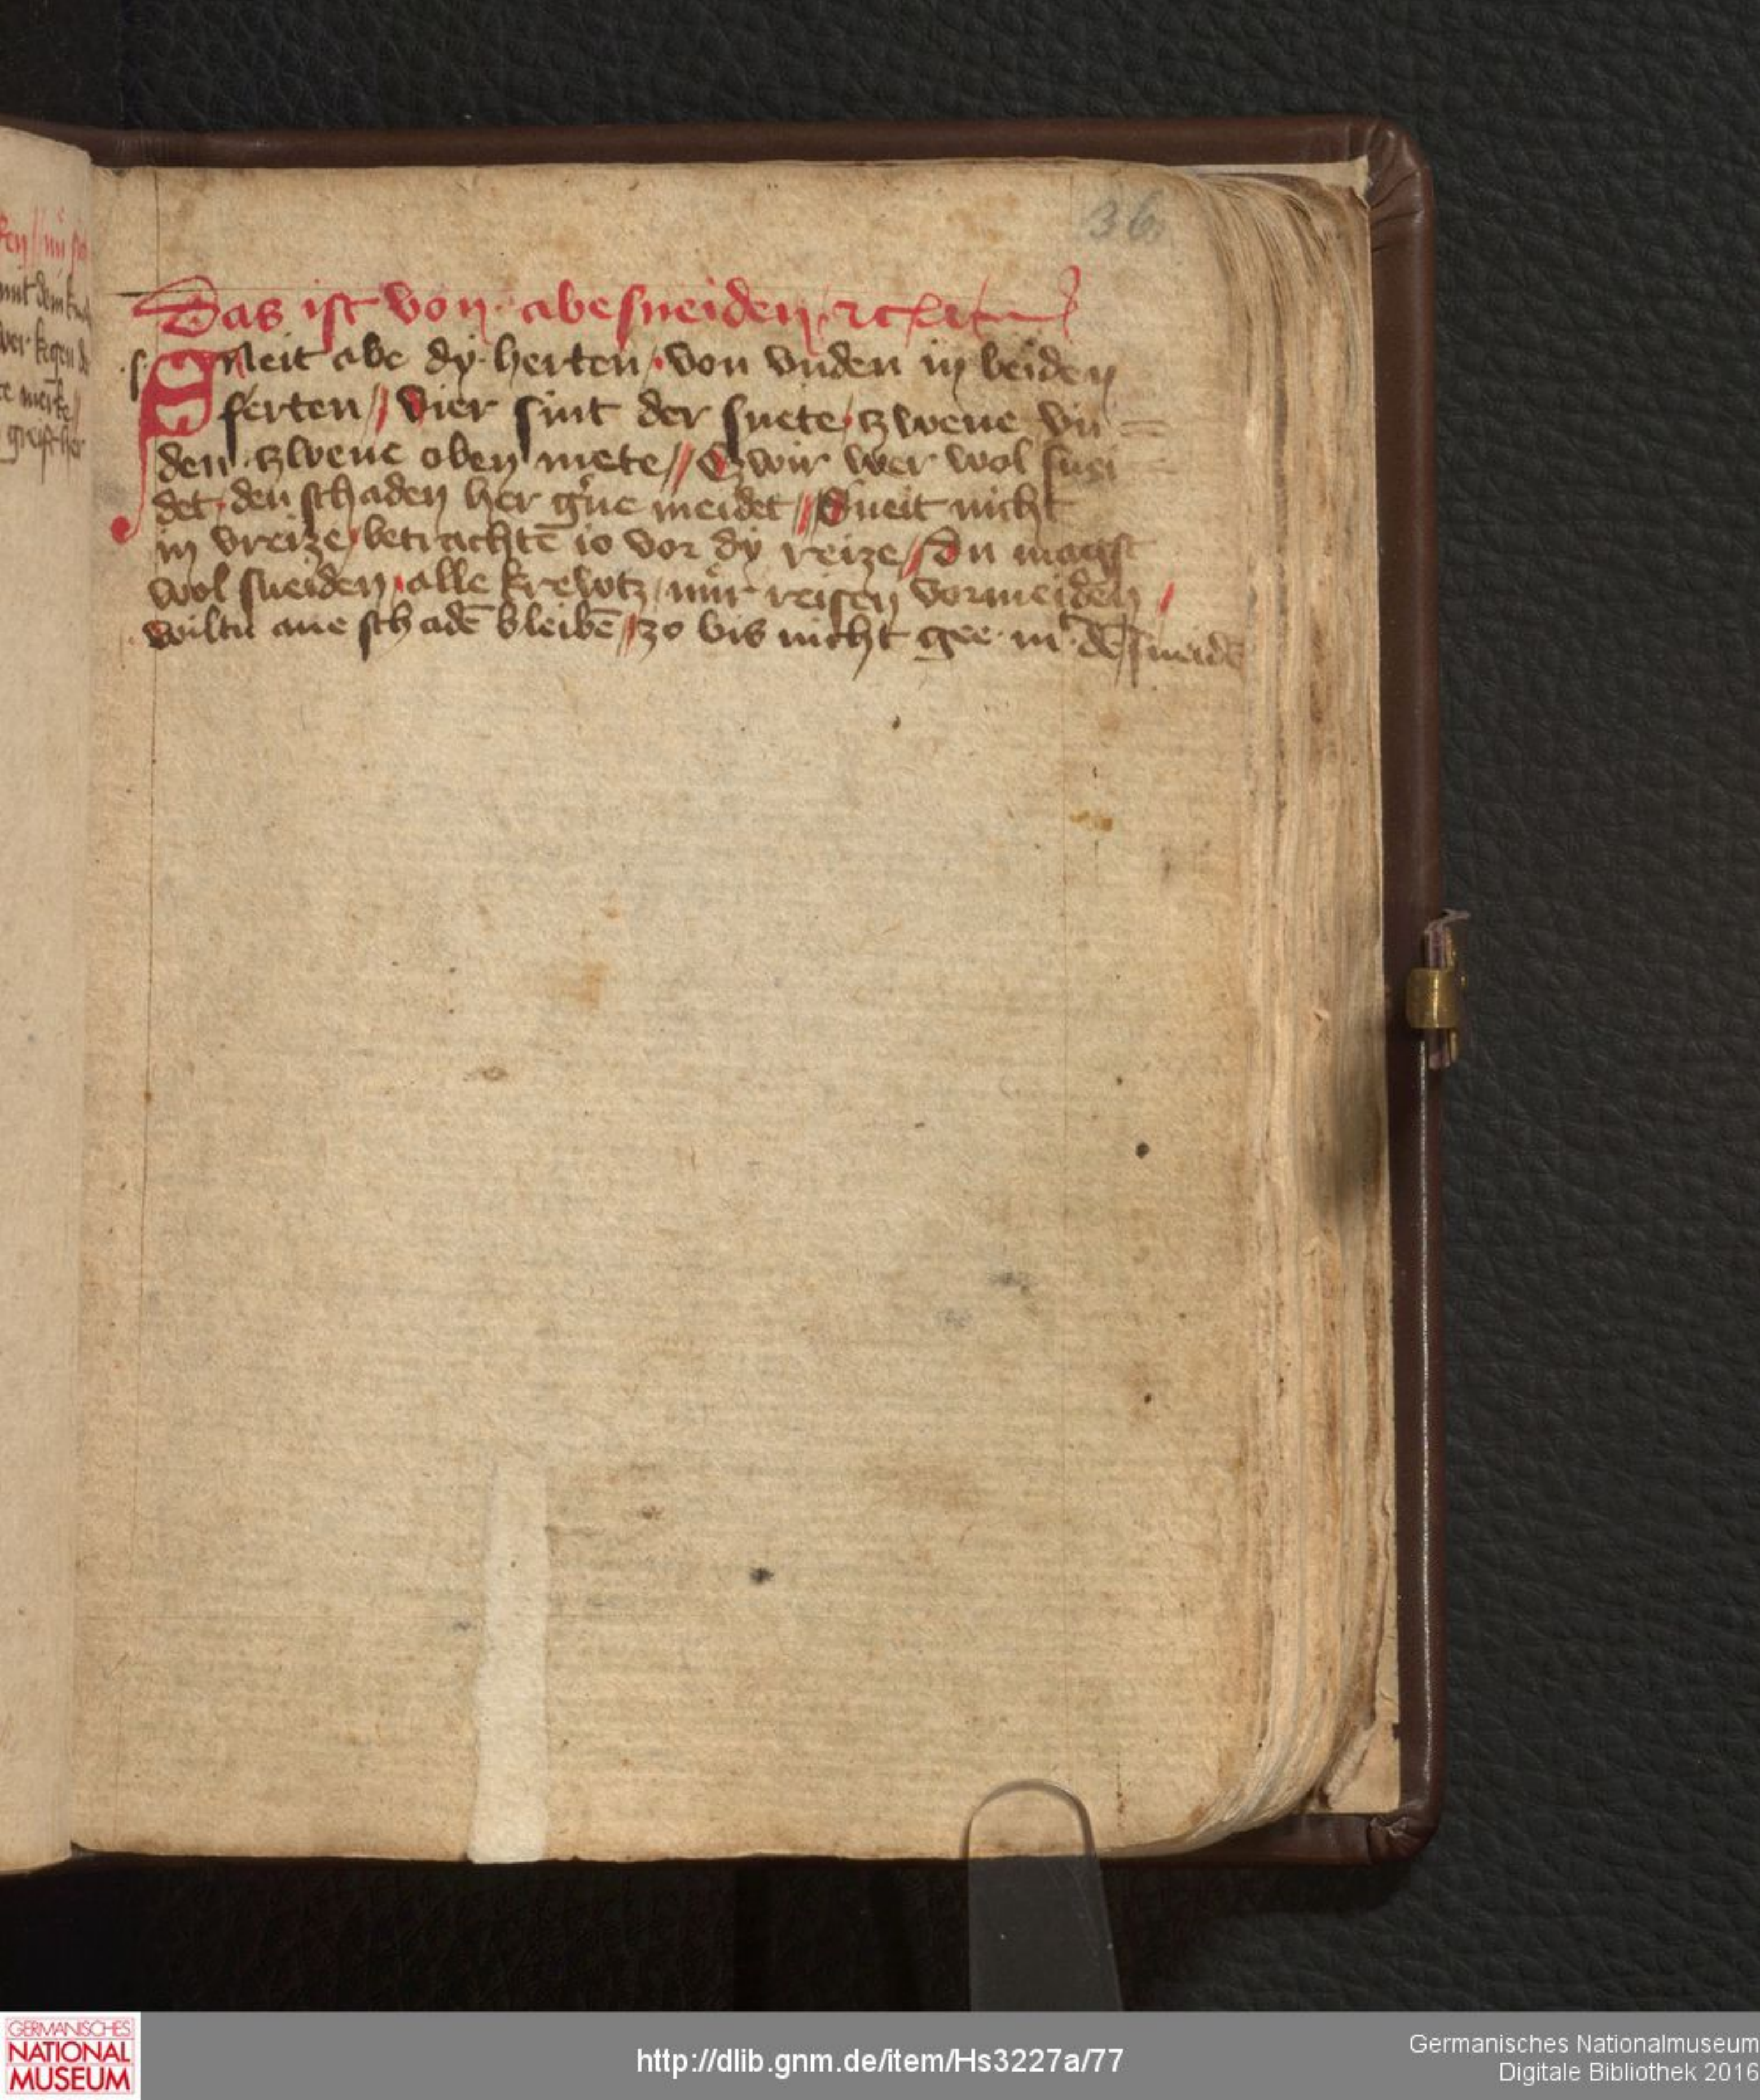 36
Das ist von· abesneiden· ⁊c
Sneit abe dy· herten / von vnden in beiden
ferten // Vier sint der snete / tzwene vn=
den· tzwene oben mete // Tzwir wer wol snei=
det· den schaden her g'ne meidet // Sneit nicht
in vreize / betrachtē io vor dy reize // Du magst
wol sneiden / alle krewtz / nür reisen vormeiden /
wiltu ane schadē bleibē // zo bis nicht gee· mit dē sneidē
GERMANISCHES
NATIONAL
MUSEUM
http://dlib.gnm.de/item/Hs3227a/77
Germanisches Nationalmuseum
Digitale Bibliothek 2016